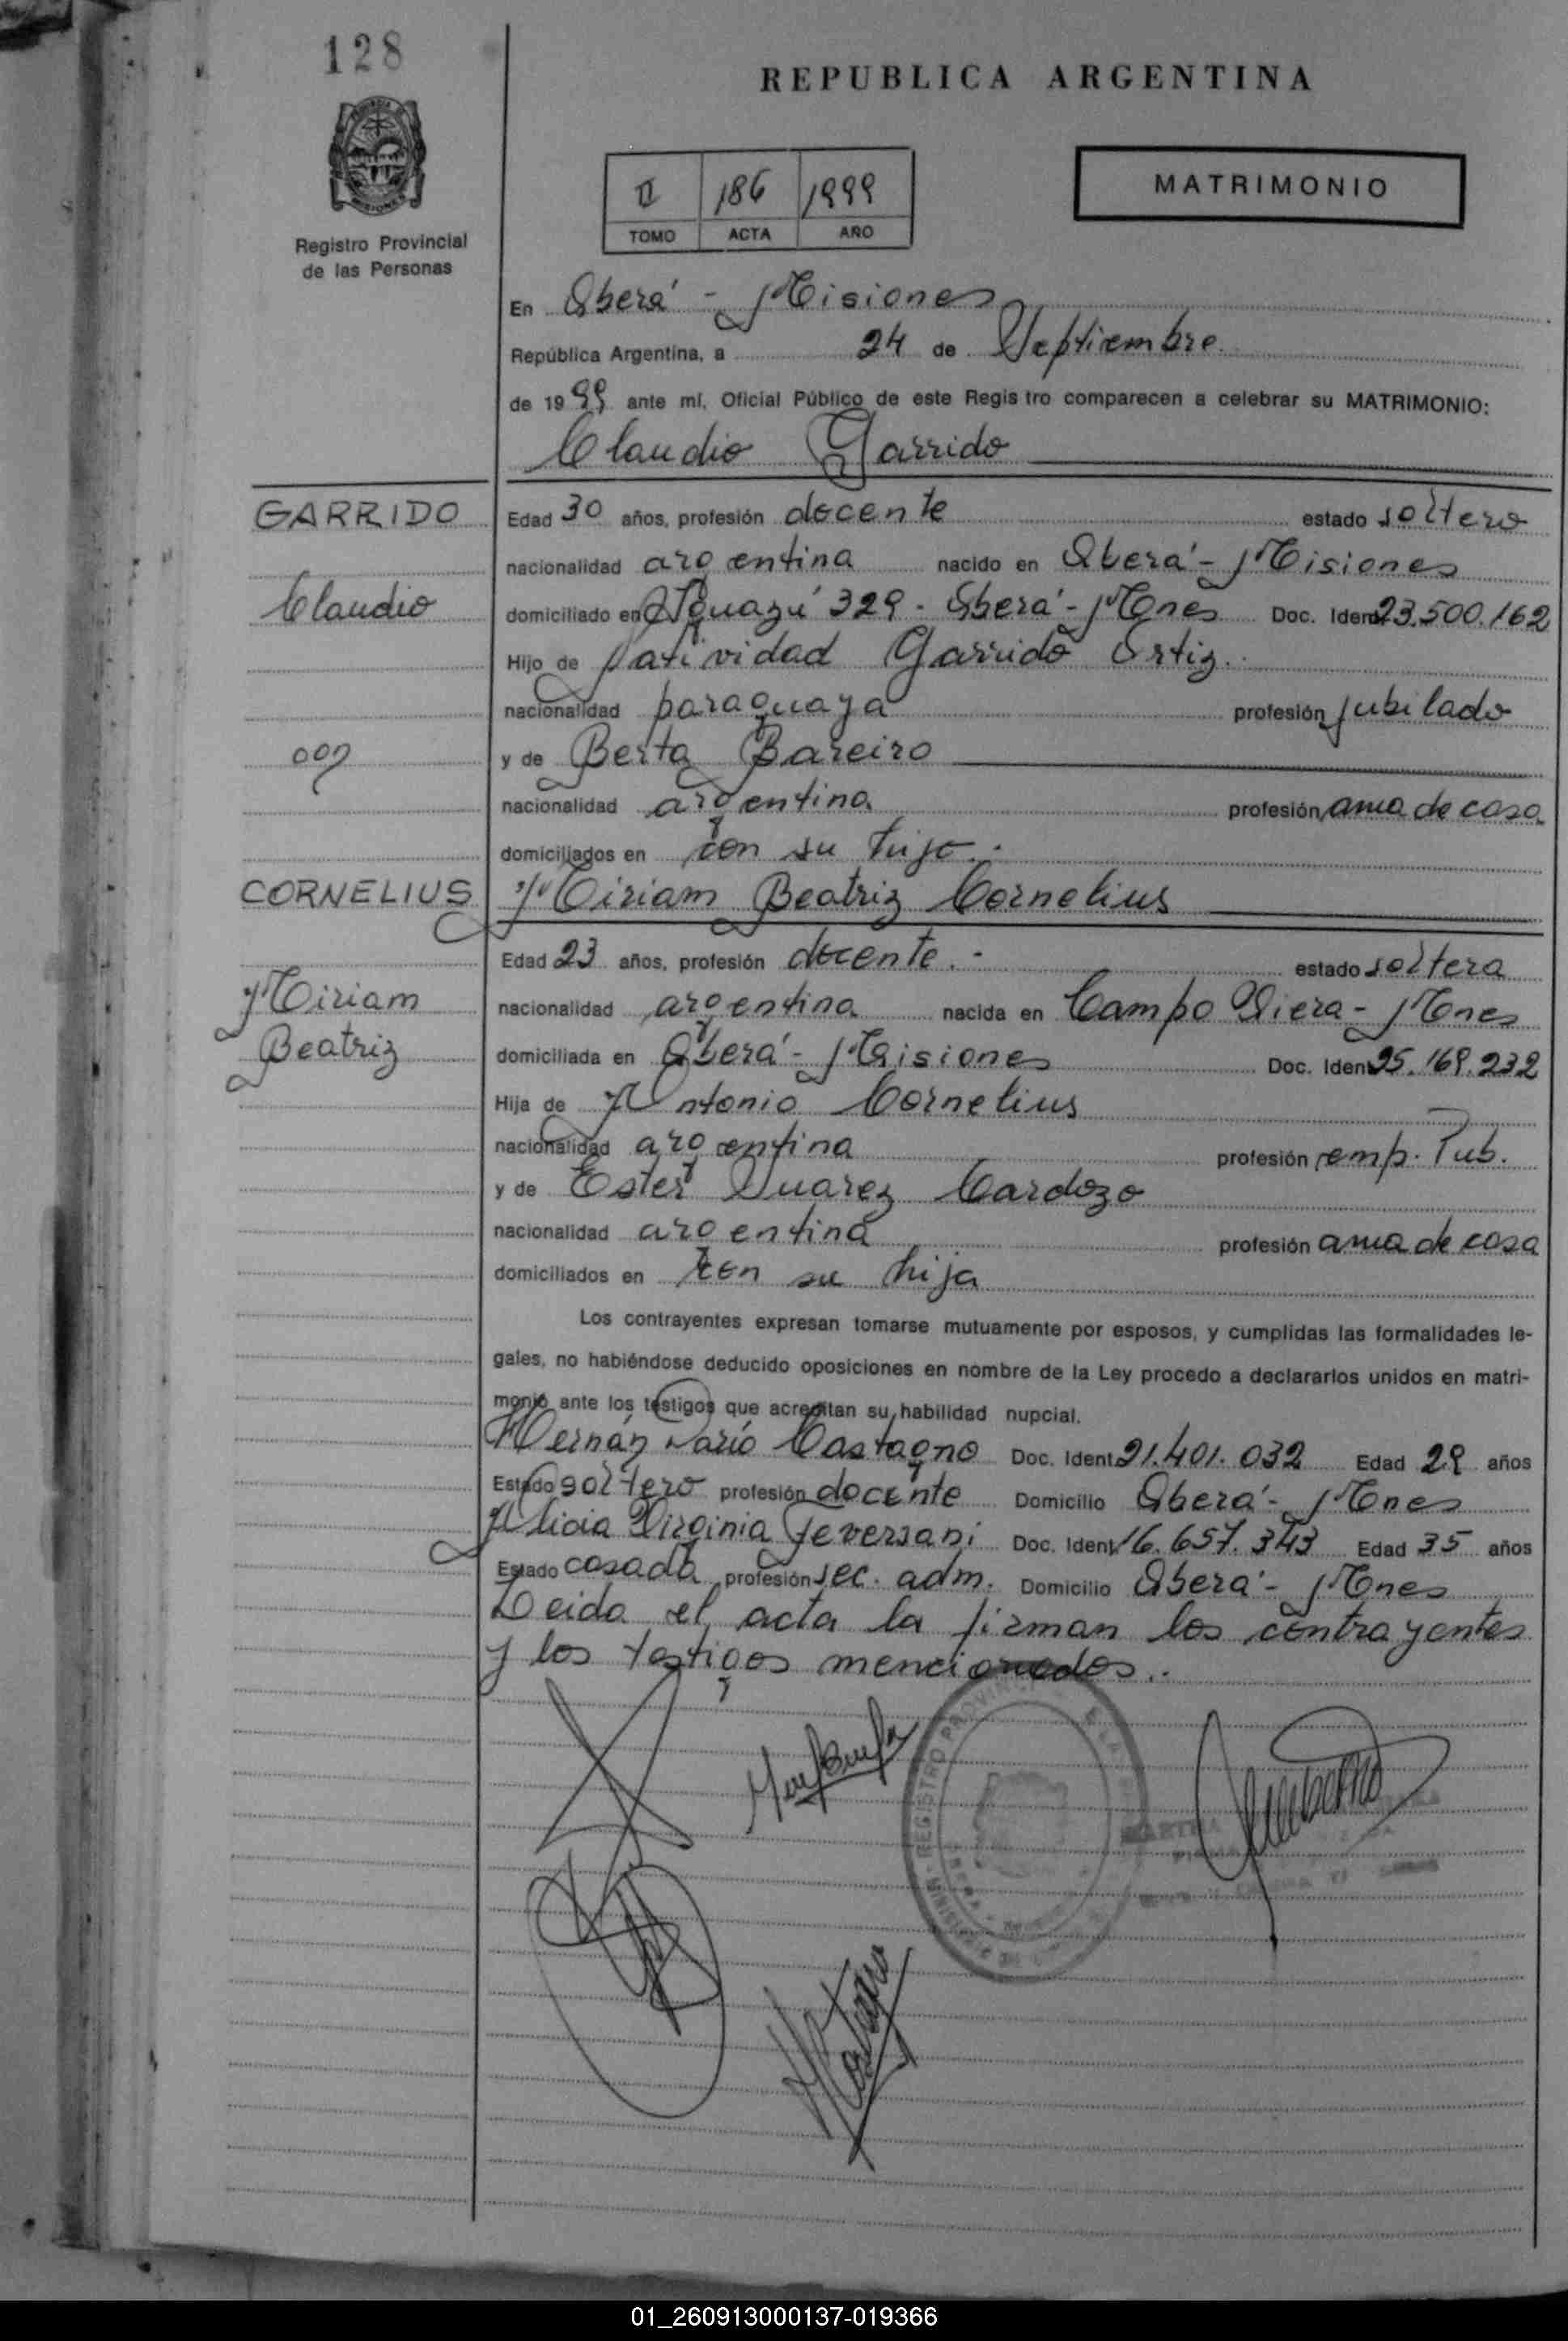 128
REPUBLICA ARGENTINA
MATRIMONIO
II 186 1999
TOMO ACTA AÑO
Registro Provincial
de las Personas
En Oberá - Misiones
República Argentina, a 24 de Septiembre
de 1999 ante mí, Oficial Público de este Regis tro comparecen a celebrar su MATRIMONIO:
Claudio Garrido
GARRIDO
Claudio
con
Edad 30 años, profesión docente estado soltero
nacionalidad argentina nacido en Oberá - Misiones
domiciliado en Iguazú 329 - Oberá - Mnes Doc. Ident. 23.500.162
Hijo de Natividad Garrido Ortiz.
nacionalidad paraguaya profesión jubilado
y de Berta Bareiro
nacionalidad argentina profesión ama de casa
domiciliados en con su hijo.
CORNELIUS
Miriam
Beatriz
Miriam Beatriz Cornelius
Edad 23 años, profesión docente. - estado soltera
nacionalidad argentina nacida en Campo Viera - Mnes
domiciliada en Oberá - Misiones Doc. Ident. 25.169.232
Hija de Antonio Cornelius
nacionalidad argentina profesión emp. Pub.
y de Ester Suarez Cardozo
nacionalidad argentina profesión ama de casa
domiciliados en con su hija
Los contrayentes expresan tomarse mutuamente por esposos, y cumplidas las formalidades le-
gales, no habiéndose deducido oposiciones en nombre de la Ley procedo a declararlos unidos en matri-
monio ante los testigos que acreditan su habilidad nupcial.
Hernán Darío Castagno Doc. Ident. 21.401.032 Edad 29 años
Estado soltero profesión docente Domicilio Oberá - Mnes
Alicia Virginia Feversani Doc. Ident. 16.657.343 Edad 35 años
Estado casada profesión sec. adm. Domicilio Oberá - Mnes
Leida el acta la firman los contrayentes
y los testigos mencionados.
01_260913000137-019366